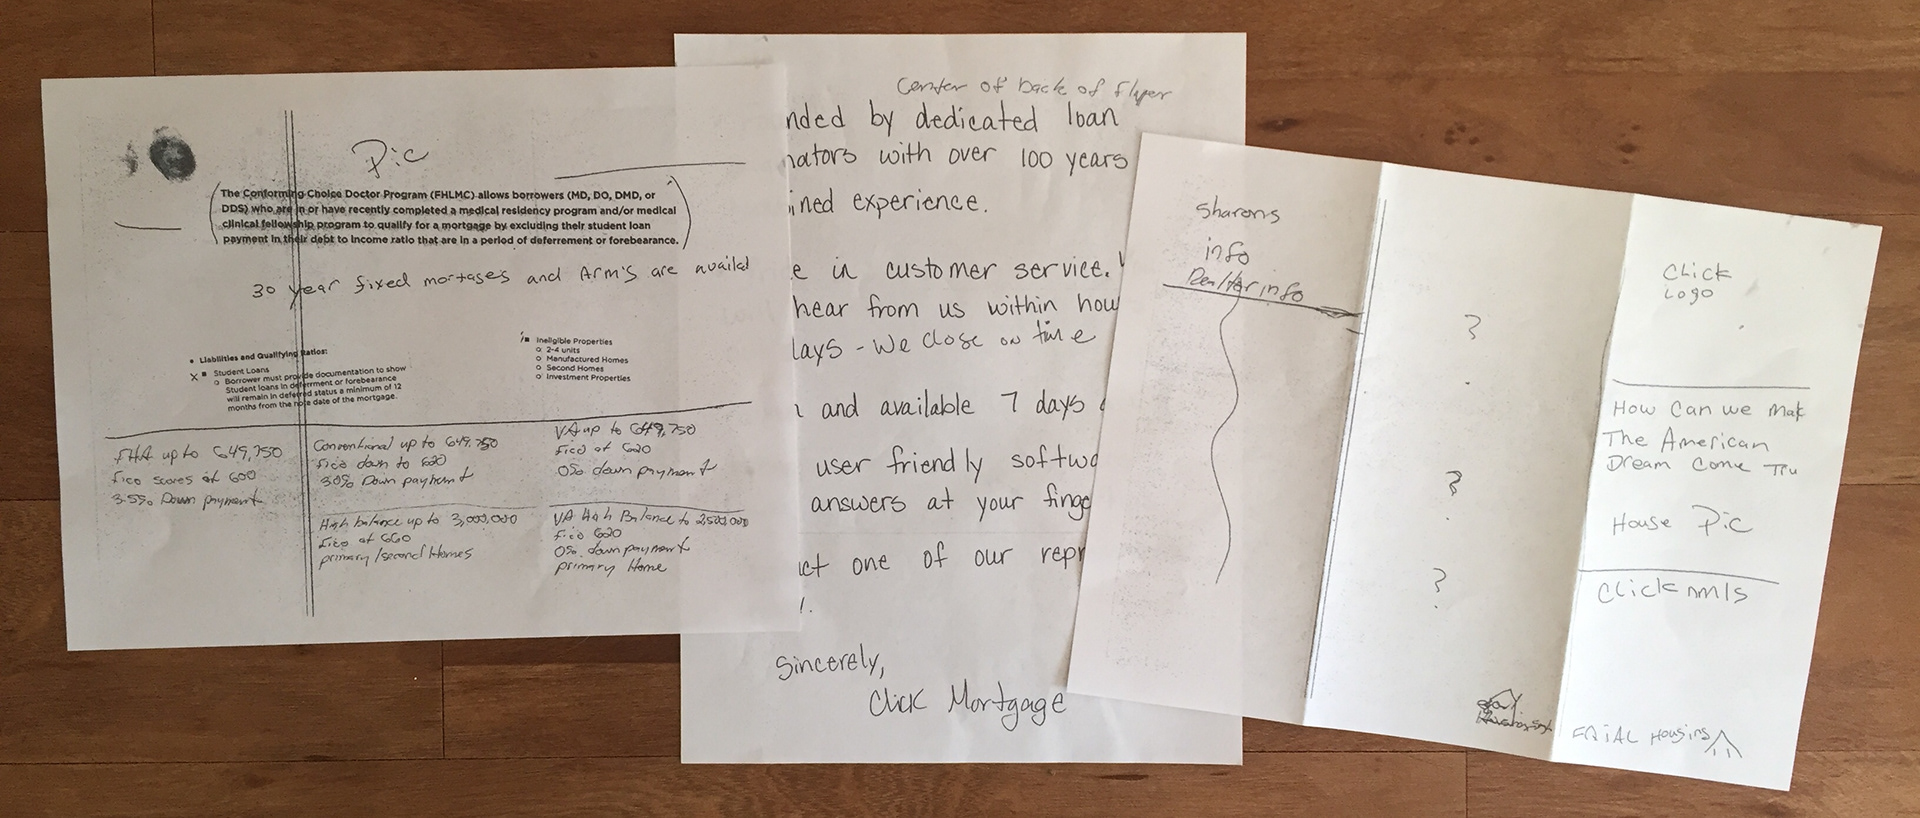 Pic
The Conforming Choice Doctor Program (FHLMC) allows borrowers (MD, DO, DMD, or
DDS) who are in or have recently completed a medical residency program and/or medical
clinical fellowship program to qualify for a mortgage by excluding their student loan
payment in their debt to income ratio that are in a period of deferrement or forebearance.
30 year fixed mortases and ARM's are availal
Liabilities and Qualifying Ratios:
X Student Loans
Borrower must provide documentation to show
Student loans in deferrment or forebearance
will remain in deferred status a minimum of 12
months from the note date of the mortgage.
Ineligible Properties
2-4 units
Manufactured Homes
Second Homes
Investment Properties
FHA up to 649,750
Fico scores of 600
3.5% Down payment
Conventional up to 649,750
Fico down to 620
30% Down payment
VA up to 649,750
Fico of 620
0% down payment
High balance up to 3,000,000
Fico of 660
primary/second Homes
VA High Balance to 2,500,000
Fico 620
0% down payment
primary Home
Center of back of flyer
nded by dedicated loan
nators with over 100 years
ined experience.
e in customer service.
hear from us within hou
lays - We Close on time
and available 7 days
user friendly softwa
answers at your finge
act one of our repr
Sincerely,
Click Mortgage
Sharons
info
Realtor info
?
?
?
Click
Logo
How Can we Mak
The American
Dream Come Tru
House Pic
Click nmls
FAIAL Housing